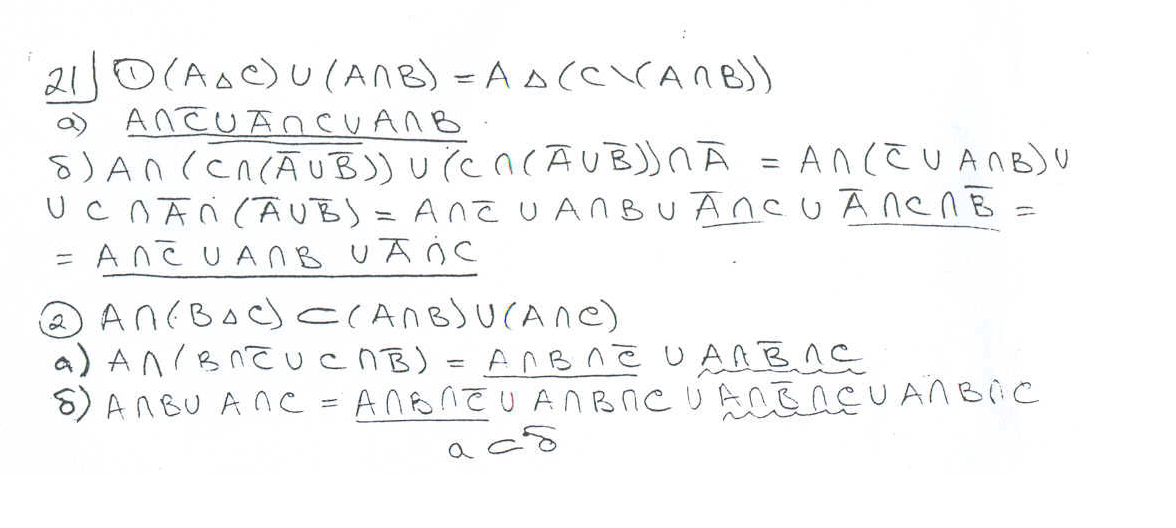 21) ① (A △ C) ∪ (A ∩ B) = A △ (C \ (A ∩ B))
a) A ∩ C̅ ∪ A̅ ∩ C ∪ A ∩ B
δ) A ∩ (C ∩ (A̅ ∪ B̅)) ∪ (C ∩ (A̅ ∪ B̅)) ∩ A̅ = A ∩ (C̅ ∪ A ∩ B) ∪
∪ C ∩ A̅ ∩ (A̅ ∪ B̅) = A ∩ C̅ ∪ A ∩ B ∪ A̅ ∩ C ∪ A̅ ∩ C ∩ B̅ =
= A ∩ C̅ ∪ A ∩ B ∪ A̅ ∩ C
② A ∩ (B △ C) ⊂ (A ∩ B) ∪ (A ∩ C)
a) A ∩ (B ∩ C̅ ∪ C ∩ B̅) = A ∩ B ∩ C̅ ∪ A ∩ B̅ ∩ C
δ) A ∩ B ∪ A ∩ C = A ∩ B ∩ C̅ ∪ A ∩ B ∩ C ∪ A ∩ B̅ ∩ C ∪ A ∩ B ∩ C
a ⊂ δ